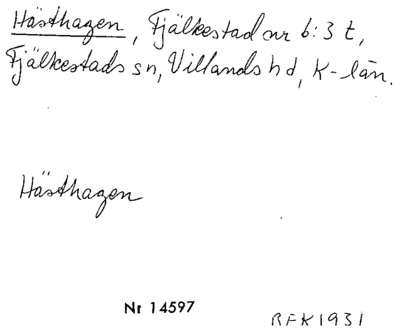 Hästhagen, Fjälkestad nr 6:3 t,
Fjälkestads sn, Villands hd, K-län.
Hästhagen
Nr 14597
RFK1931